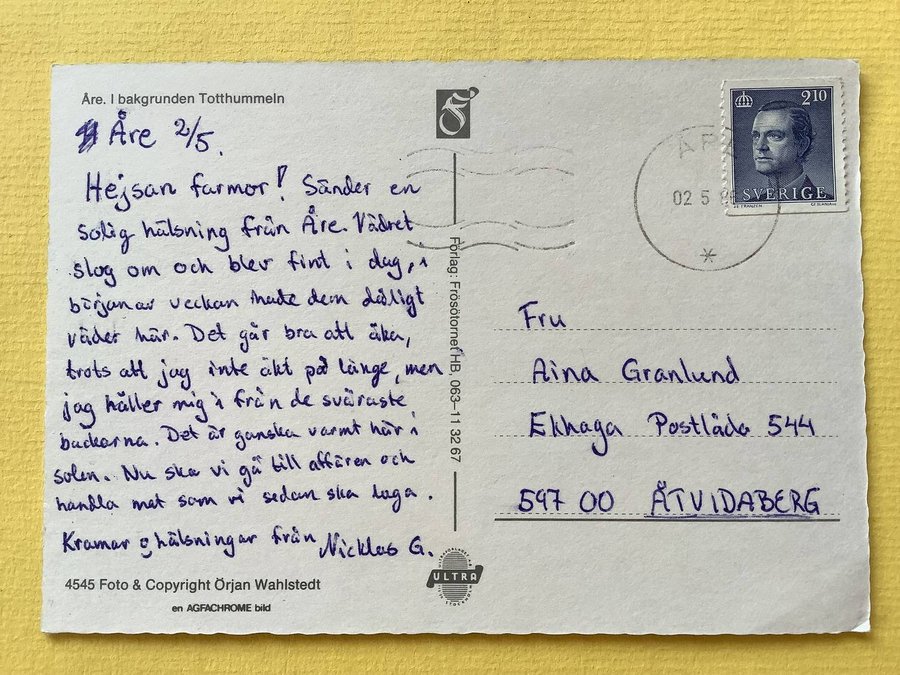 Åre. I bakgrunden Totthummeln
Åre 2/5.
Hejsan farmor! Sänder en
solig hälsning från Åre. Vädret
slog om och blev fint i dag, i
början av veckan hade dem dåligt
väder här. Det går bra att åka,
trots att jag inte åkt på länge, men
jag håller mig i från de svåraste
backarna. Det är ganska varmt här i
solen. Nu ska vi gå till affären och
handla mat som vi sedan ska laga.
Kramar o hälsningar från Nicklas G.
4545 Foto & Copyright Örjan Wahlstedt
en AGFACHROME bild
Förlag: Frösötornet HB, 063–11 32 67
ULTRA
210
SVERIGE
02 5
Fru
Aina Granlund
Ekhaga Postlåda 544
597 00 ÅTVIDABERG